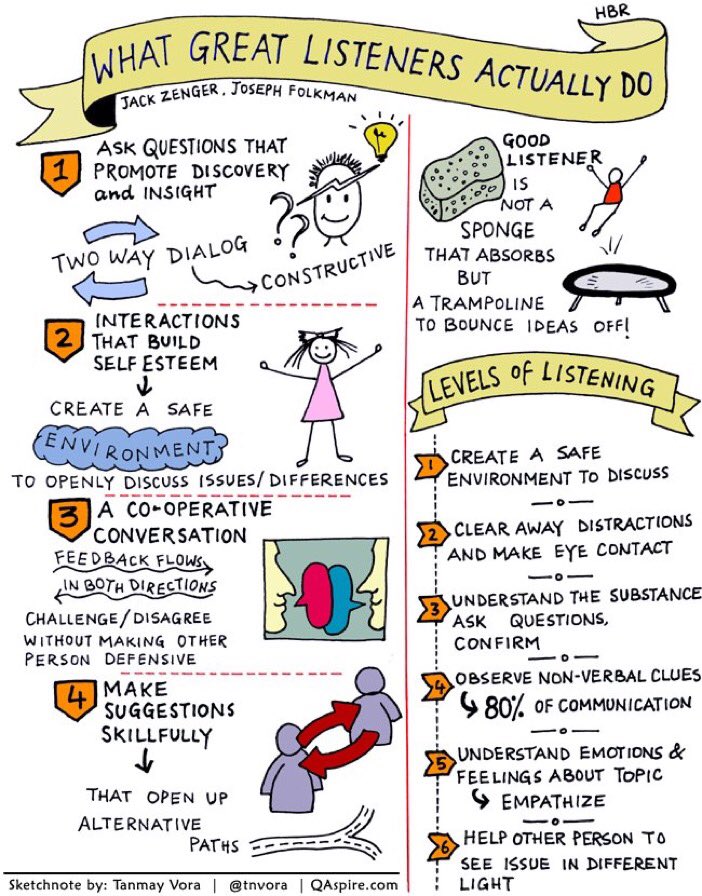 HBR
WHAT GREAT LISTENERS ACTUALLY DO
JACK ZENGER, JOSEPH FOLKMAN
1
ASK QUESTIONS THAT
PROMOTE DISCOVERY
and INSIGHT
??
TWO WAY DIALOG
CONSTRUCTIVE
2
INTERACTIONS
THAT BUILD
SELF ESTEEM
CREATE A SAFE
ENVIRONMENT
TO OPENLY DISCUSS ISSUES/DIFFERENCES
3
A CO-OPERATIVE
CONVERSATION
FEEDBACK FLOWS
IN BOTH DIRECTIONS
CHALLENGE/DISAGREE
WITHOUT MAKING OTHER
PERSON DEFENSIVE
4
MAKE
SUGGESTIONS
SKILLFULLY
THAT OPEN UP
ALTERNATIVE
PATHS
GOOD
LISTENER
IS
NOT A
SPONGE
THAT ABSORBS
BUT
A TRAMPOLINE
TO BOUNCE IDEAS OFF!
LEVELS of LISTENING
1 CREATE A SAFE
ENVIRONMENT TO DISCUSS
2 CLEAR AWAY DISTRACTIONS
AND MAKE EYE CONTACT
3 UNDERSTAND THE SUBSTANCE
ASK QUESTIONS,
CONFIRM
4 OBSERVE NON-VERBAL CLUES
80% OF COMMUNICATION
5 UNDERSTAND EMOTIONS &
FEELINGS ABOUT TOPIC
EMPATHIZE
6 HELP OTHER PERSON TO
SEE ISSUE IN DIFFERENT
LIGHT
Sketchnote by: Tanmay Vora | @tnvora | QAspire.com